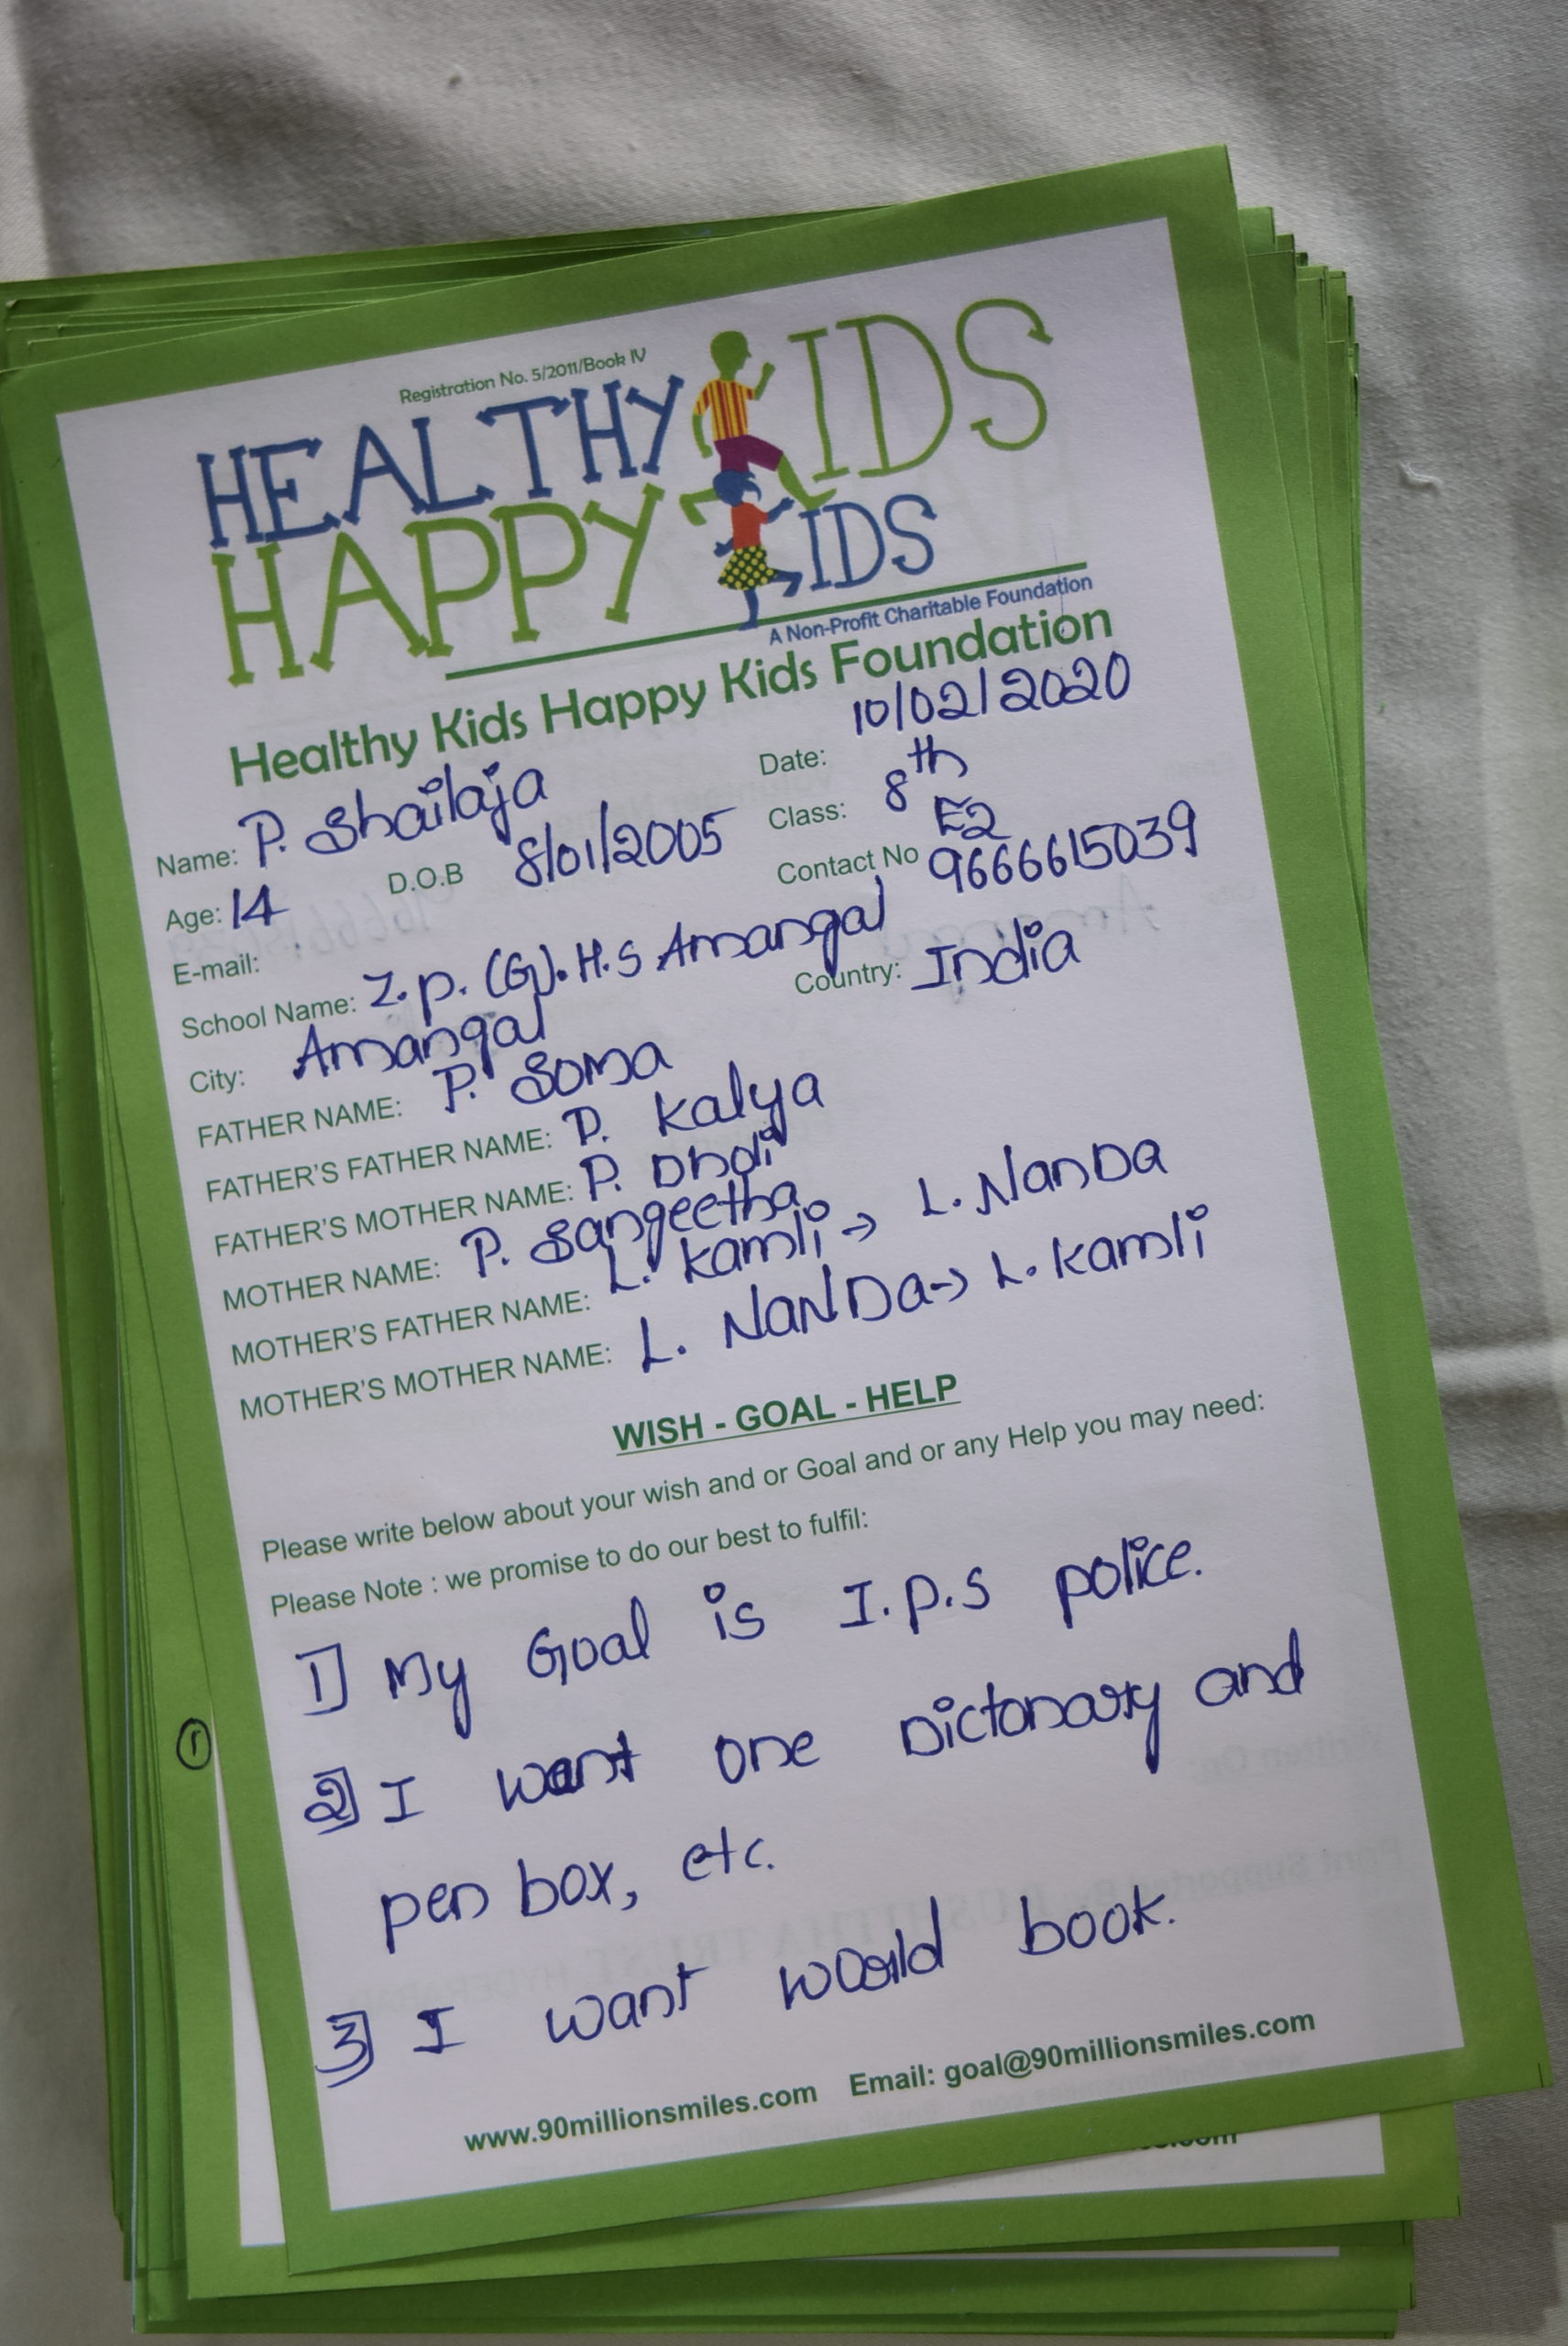 Registration No. 5/2011/Book IV
HEALTHY KIDS
HAPPY KIDS
A Non-Profit Charitable Foundation
Healthy Kids Happy Kids Foundation
Date: 10/02/2020
Name: P. Shailaja
Class: 8th
E2
Age: 14 D.O.B 8/01/2005 Contact No 9666615039
E-mail:
School Name: Z.p.(G).H.S Amangal
City: Amangal Country: India
FATHER NAME: P. Soma
FATHER'S FATHER NAME: P. Kalya
FATHER'S MOTHER NAME: P. Dholi
MOTHER NAME: P. Sangeetha
MOTHER'S FATHER NAME: L. Kamli → L. NanDa
MOTHER'S MOTHER NAME: L. NANDa → L. Kamli
WISH - GOAL - HELP
Please write below about your wish and or Goal and or any Help you may need:
Please Note : we promise to do our best to fulfil:
1] My Goal is I.P.S police.
2] I want one Dictonary and
pen box, etc.
3] I want woorld book.
www.90millionsmiles.com Email: goal@90millionsmiles.com
1